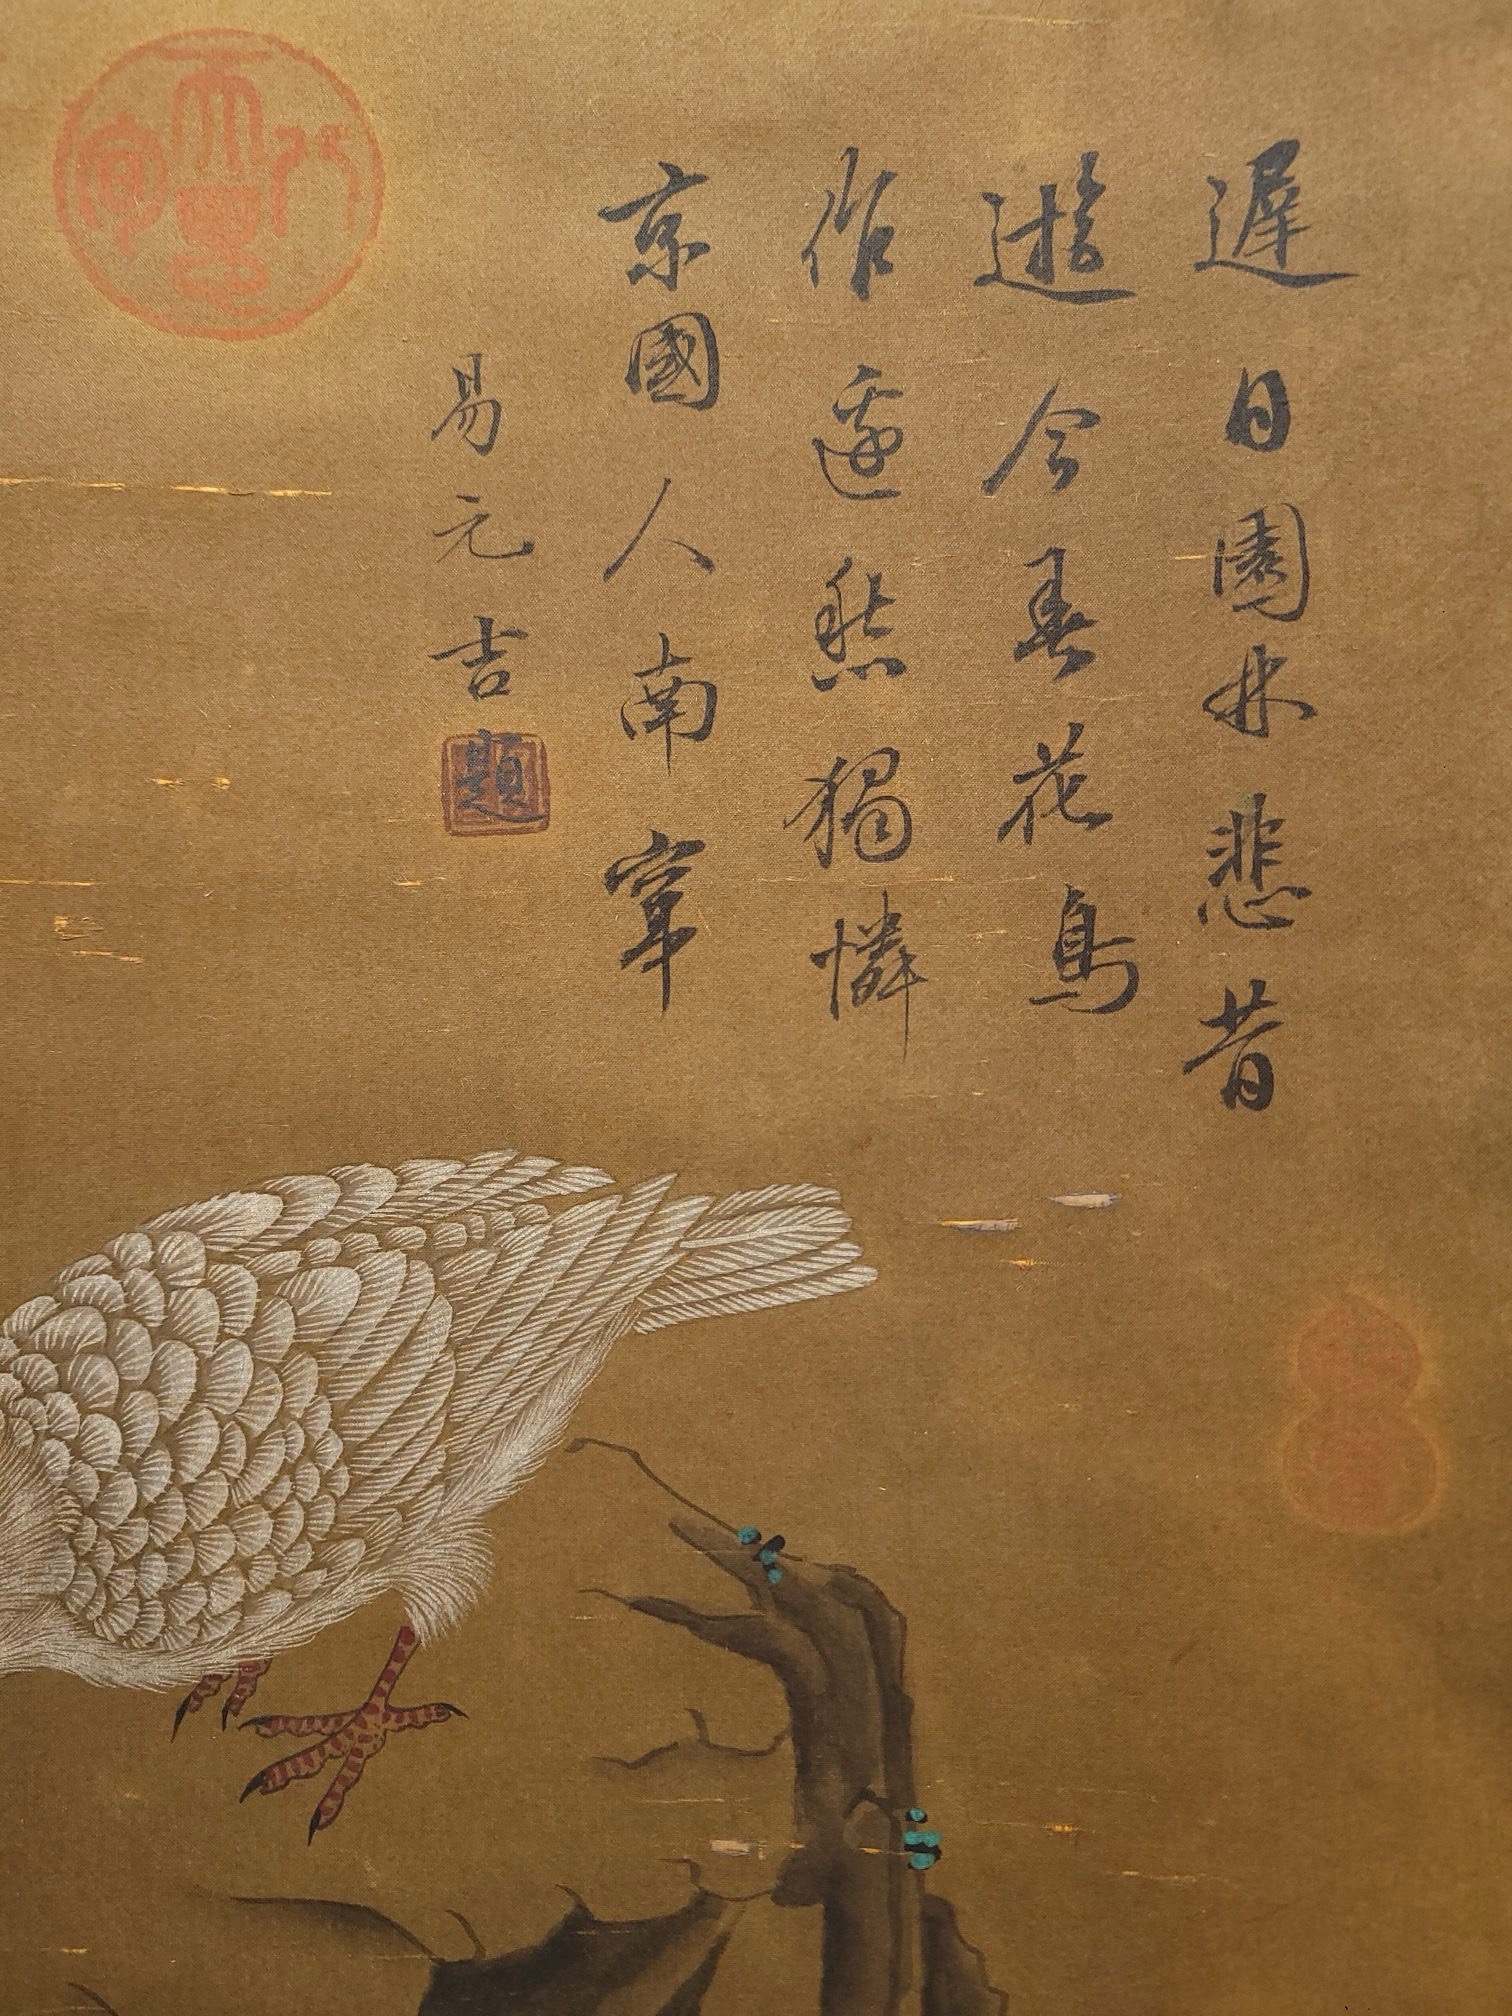 遲日園林悲昔
遊今春花鳥
作邊愁獨憐
京國人南竄
易元吉題